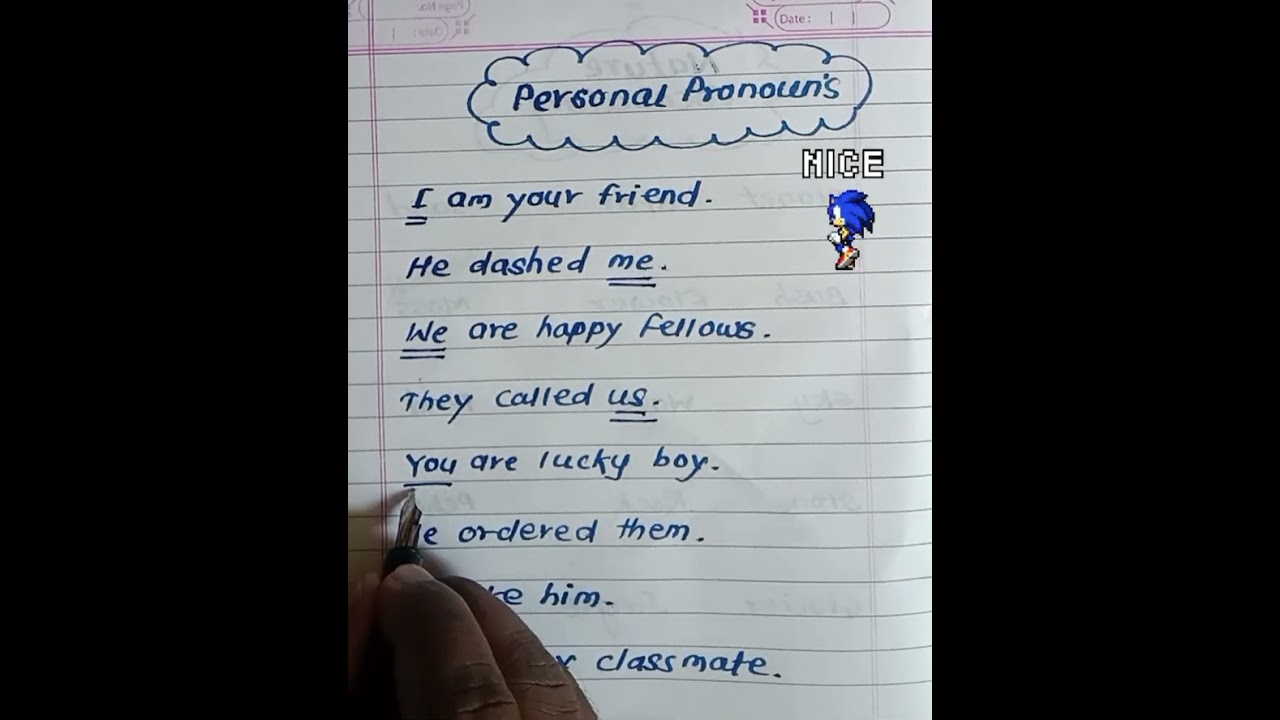 Date:
Personal Pronoun's
NICE
I am your friend.
He dashed me.
We are happy fellows.
They called us.
You are lucky boy.
ordered them.
him.
classmate.